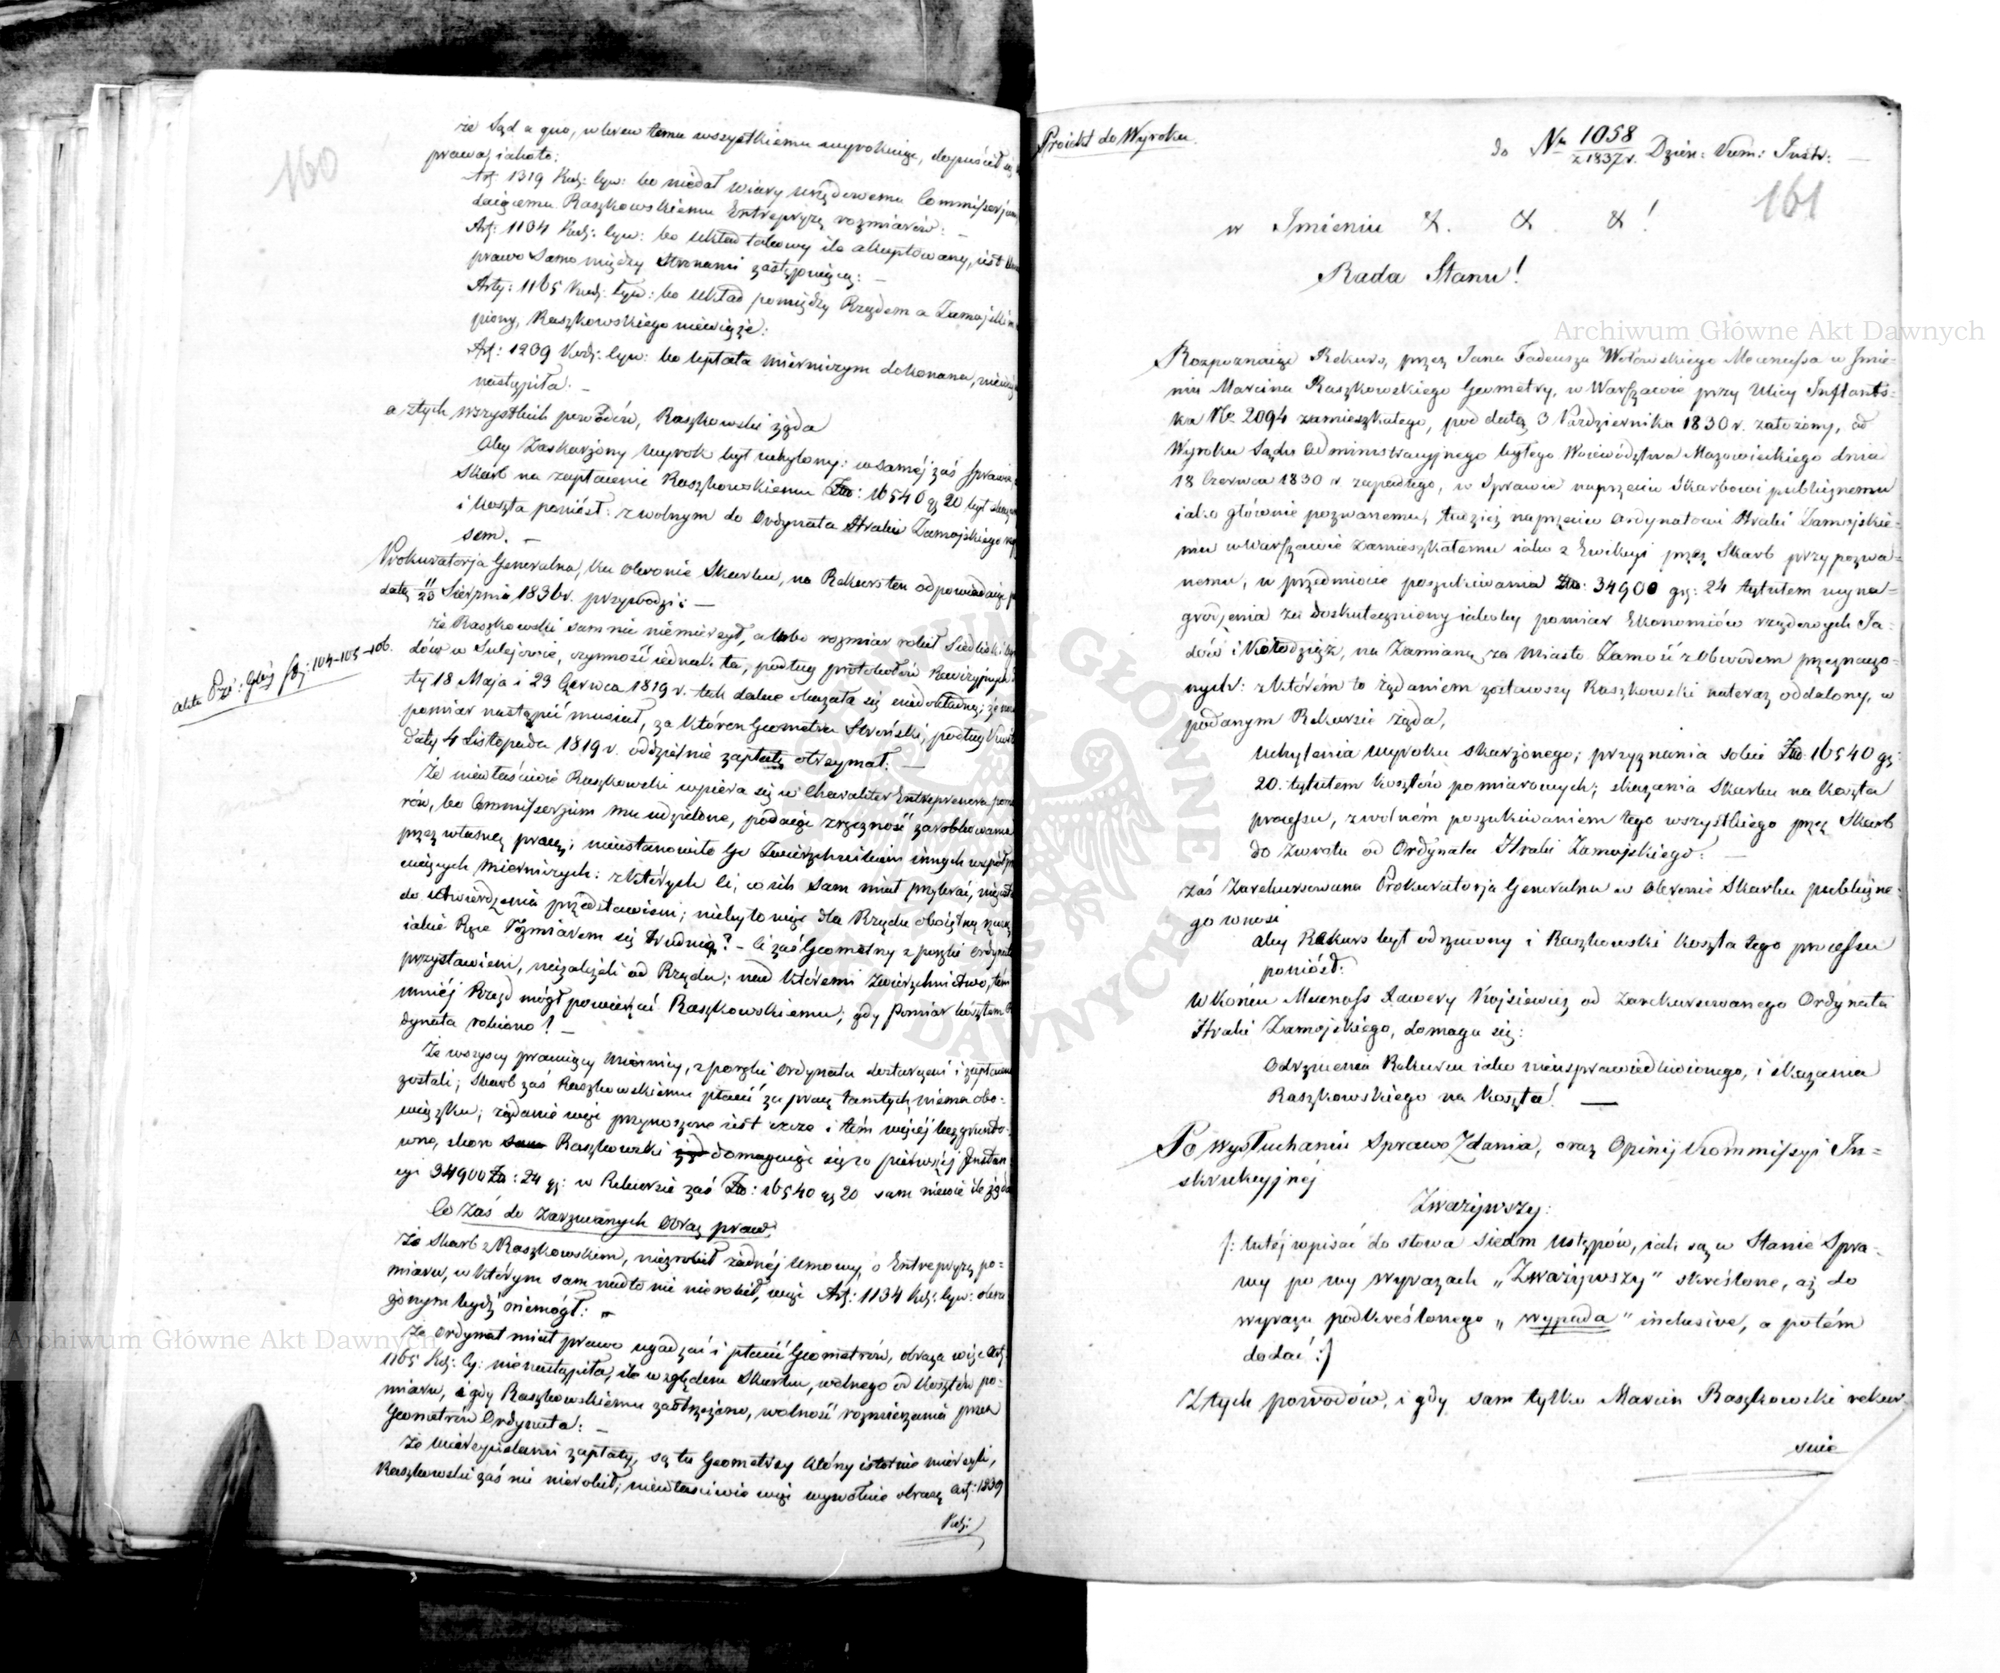 160
że Sąd a quo, wbrew temu wszystkiemu wyrokuiąc, dopuścił się
prawa, iakoto:
Art: 1319 Kod: Cyw: bo niedał wiary urzędowemu Commissorjum,
daiącemu Raszkowskiemu Entrepryzę rozmiarów: —
Art: 1134 Kod: Cyw: bo układ takowy ile akceptowany, iest
prawo samo między Stronami zastępuiącą: —
Arty: 1165 Kod: Cyw: bo układ pomiędzy Rządem a Zamojskim
piony, Raszkowskiego niewiąże:
Art: 1239 Kod: Cyw: bo wpłata mierniczym dokonana,
nastąpiła. —
a ztych wszystkich powodów, Raszkowski żąda
aby Zaskarżony wyrok był uchylony: wsaméj zaś Sprawie,
Skarb na zapłacenie Raszkowskiemu Złp: 16540 gr 20 był
i koszta poniósł: zwolnym do Ordynata Hrabi Zamojskiego
sem. —
Prokuratorja Generalna, ku obronie Skarbu, na Rekurs ten odpowiadaiąc p
datą 11/23 Sierpnia 1836 r. przywodzi: —
akta Pro: Gley fg: 104-105-106.
że Raszkowski sam nic niemierzył, albo rozmiar robił Siedlisk i
dów w Sulejowie, czynność iednak ta, podług protokołów Rewizyjnych
ty 18 Maja i 23 Czerwca 1819 r. tak dalece okazała się niedokładną; że
pomiar nastąpić musiał, za któren Geometra Stroński, podług Kwitu
daty 4 Listopada 1819 r. oddzielnie zapłatę otrzymał: —
Że niewłaściwie Raszkowski wpiera się w Charakter Entreprenera pomia
rów, bo Commissorjum mu udzielone, podaiąc zręczność zarobkowania
przez własną pracę; nieustanowiło Go Zwierzchnikiem innych współpra
cuiących mierniczych: z których Ci, co ich sam miał przybrać,
do utwierdzenia przedstawieni; niebyło więc dla Rządu oboiętną rzeczą
iakie Ręce Rozmiarem się trudnią? — Ci zaś Geometry z posły Ordynata
przystawieni, niezależeli od Rządu; nad któremi Zwierzchnictwo, tém
mniéj Rząd mógł powierzać Raszkowskiemu, gdy pomiar kosztem Or
dynata robiono? —
Że wszyscy pracuiący Miernicy, z posły Ordynata dostarczeni i zapłaceni
zostali; Skarb zaś Raszkowskiemu płacić za pracę tamtych, niema obo-
wiązku; żądanie więc przynoszone iest czcze i tém więcéj bezgrunto-
wne, skoro Raszkowski domagaiąc się w pierwszéj Instan-
cyi 34900 Złp: 24 gr: w Rekursie zaś Złp: 16540 gr 20 sam niewie ile żąda
Co zaś do Zarzucanych Obraz praw:
Że Skarb z Raszkowskim, niezrobił żadnéj Umowy, o Entrepryzę po-
miaru, w którym sam nadto nic nierobił, więc Art: 1134 Kod: Cyw: obra
żonym bydź niemógł: —
Że Ordynat miał prawo ugadzać i płacić Geometrów, obraza więc Art:
1165 Kod: Cy: nienastąpiła, ile względem Skarbu, wolnego od kosztów po-
miaru, i gdy Raszkowskiemu zastrzeżono, wolność rozmierzania przez
Geometrów Ordynata: —
Że Wierzycielami zapłaty, są tu Geometrzy którzy istotnie mierzyli,
Raszkowski zaś nic nierobił, niewłaściwie więc wywołuie obrazę Art: 1239
Kod:
Proiekt do Wyroku.
do Nr 1058/z 1837 r. Dzien: Num: Instr: —
161
w Imieniu &. &. &!
Rada Stanu!
Rozpoznaiąc Rekurs, przez Jana Tadeusza Wołowskiego Mecenassa w Imie-
niu Marcina Raszkowskiego Geometry, w Warszawie przy Ulicy Inflants-
ka No 2094 zamieszkałego, pod datą 3 Października 1830 r. założony, od
Wyroku Sądu Administracyjnego byłego Woiewództwa Mazowieckiego dnia
18 Czerwca 1830 r. zapadłego, w Sprawie naprzeciw Skarbowi publicznemu
iako głównie pozwanemu, tudzież naprzeciw Ordynatowi Hrabi Zamojskie-
mu w Warszawie Zamieszkałemu iako z Ewikcyi przez Skarb przypozwa-
nemu, w przedmiocie poszukiwania Złp. 34900 gr: 24 tytułem wyna-
grodzenia za doskuteczniony iakoby pomiar Ekonomiów rządowych Ja-
dów i Kołodziąż, na Zamianę za Miasto Zamość z Obwodem przeznaczo-
nych: z którém to żądaniem zostawszy Raszkowski nateraz oddalony, w
podanym Rekursie żąda,
Uchylenia wyroku skarżonego; przyznania sobie Złp. 16540 gr:
20. tytułem kosztów pomiarowych; skazania Skarbu na koszta
processu, z wolném poszukiwaniem tego wszystkiego przez Skarb
do zwrotu od Ordynata Hrabi Zamojskiego: —
zaś Zarekursowana Prokuratorja Generalna w Obronie Skarbu publiczne-
go wnosi
aby Rekurs był odrzucony i Raszkowski koszta tego processu
poniósł:
W końcu Mecenass Xawery Krysiewicz od Zarekursowanego Ordynata
Hrabi Zamojskiego, domaga się:
Odrzucenia Rekursu iako nieusprawiedliwionego, i skazania
Raszkowskiego na koszta! —
Po Wysłuchaniu Sprawo Zdania, oraz Opinij Kommissyi In-
strukcyjnéj
Zważywszy:
/: tutéj wpisać do słowa siedm Ustępów, iak są w Stanie Spra-
wy po wyrazach „Zważywszy" skréślone, aż do
wyrazu podkreślonego „wypada" inclusive, a potém
dodać :/
Z tych powodów, i gdy sam tylko Marcin Raszkowski rekur-
suie
Archiwum Główne Akt Dawnych
Archiwum Główne Akt Dawnych
ARCHIWUM GŁÓWNE AKT DAWNYCH